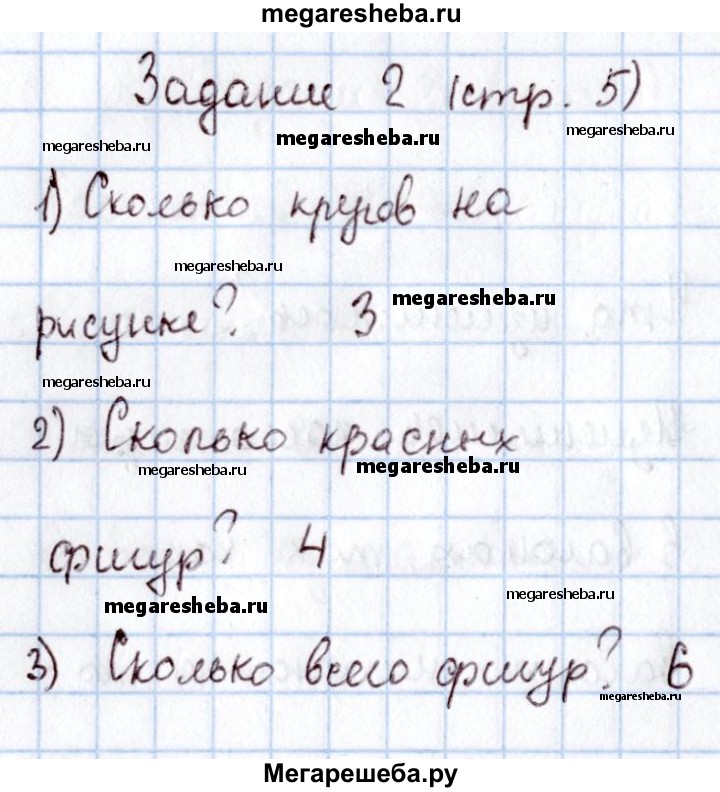 megaresheba.ru
Задание 2 (стр. 5)
megaresheba.ru
megaresheba.ru
megaresheba.ru
1) Сколько кругов на
megaresheba.ru
рисунке? 3
megaresheba.ru
megaresheba.ru
2) Сколько красных
megaresheba.ru
megaresheba.ru
фигур? 4
megaresheba.ru
megaresheba.ru
3) Сколько всего фигур? 6
megaresheba.ru
Мегарешеба.ру